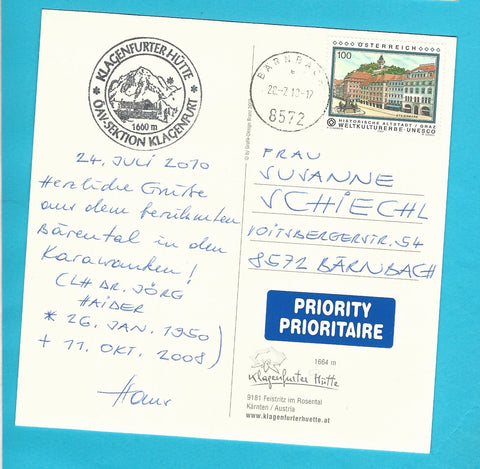 KLAGENFURTER HÜTTE
1660 m
ÖAV-SEKTION KLAGENFURT
24. JULI 2010
Herzliche Grüße
aus dem berühmten
Bärental in den
Karawanken!
(LH DR. JÖRG
HAIDER
* 26. JAN. 1950
+ 11. OKT. 2008)
Hans
BÄRNBACH
8572
100
ÖSTERREICH
HISTORISCHE ALTSTADT / GRAZ
WELTKULTURERBE-UNESCO
FRAU
SUSANNE
SCHIECHL
VOITSBERGERSTR. 54
8572 BÄRNBACH
PRIORITY
PRIORITAIRE
1664 m
Klagenfurter Hütte
9181 Feistritz im Rosental
Kärnten / Austria
www.klagenfurterhuette.at